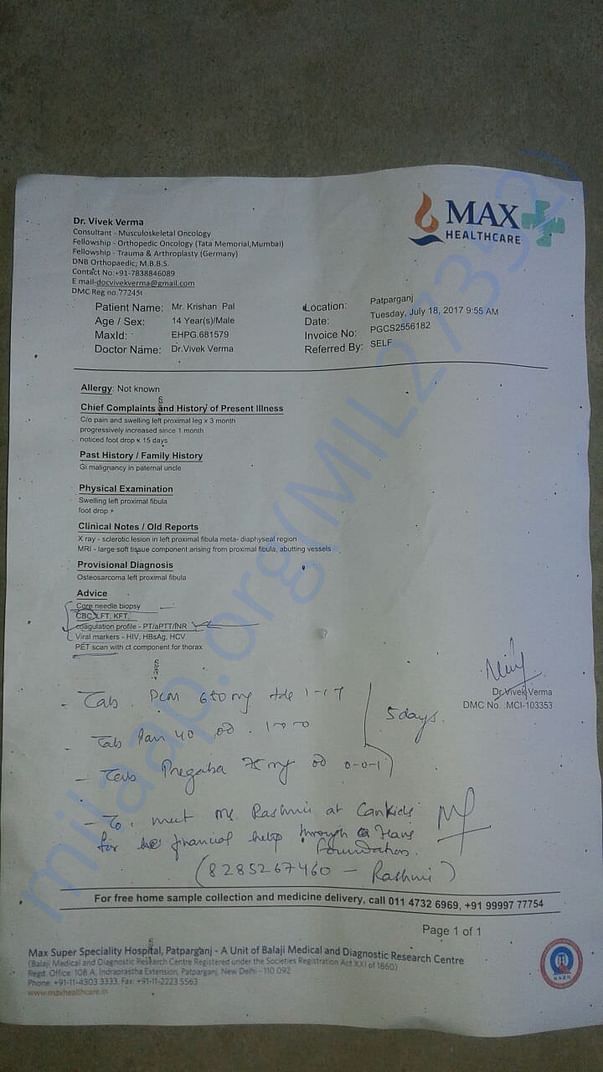 MAX
HEALTHCARE
Dr. Vivek Verma
Consultant - Musculoskeletal Oncology
Fellowship - Orthopedic Oncology (Tata Memorial,Mumbai)
Fellowship - Trauma & Arthroplasty (Germany)
DNB Orthopaedic, M.B.B.S.
Contact No:+91-7838846089
E mail-docvivekverma@gmail.com
DMC Reg no.77245
Patient Name: Mr. Krishan Pal
Age / Sex: 14 Year(s)/Male
MaxId: EHPG.681579
Doctor Name: Dr.Vivek Verma
Location: Patparganj
Date: Tuesday, July 18, 2017 9:55 AM
Invoice No: PGCS2556182
Referred By: SELF
Allergy: Not known
Chief Complaints and History of Present Illness
C/o pain and swelling left proximal leg x 3 month
progressively increased since 1 month
noticed foot drop x 15 days
Past History / Family History
GI malignancy in paternal uncle
Physical Examination
Swelling left proximal fibula
foot drop +
Clinical Notes / Old Reports
X ray - sclerotic lesion in left proximal fibula meta- diaphyseal region
MRI - large soft tissue component arising from proximal fibula, abutting vessels
Provisional Diagnosis
Osteosarcoma left proximal fibula
Advice
Core needle biopsy
CBC, LFT, KFT,
coagulation profile - PT/aPTT/INR
Viral markers - HIV, HBsAg, HCV
PET scan with ct component for thorax
Dr.Vivek Verma
DMC No.:MCI-103353
- Tab. PCM 650mg tds 1-1-1
- Tab Pan 40 od. 1-0-0
5 days
- Tab Pregaba 75 mg od 0-0-1
- To. meet Ms. Rashmi at Cankids
for financial help through Hans
Foundation.
(8285267460 - Rashmi)
For free home sample collection and medicine delivery, call 011 4732 6969, +91 99997 77754
Page 1 of 1
Max Super Speciality Hospital, Patparganj - A Unit of Balaji Medical and Diagnostic Research Centre
(Balaji Medical and Diagnostic Research Centre Registered under the Societies Registration Act XXI of 1860)
Regd. Office: 108 A, Indraprastha Extension, Patparganj, New Delhi - 110 092
Phone: +91-11-4303 3333, Fax: +91-11-2223 5563
www.maxhealthcare.in